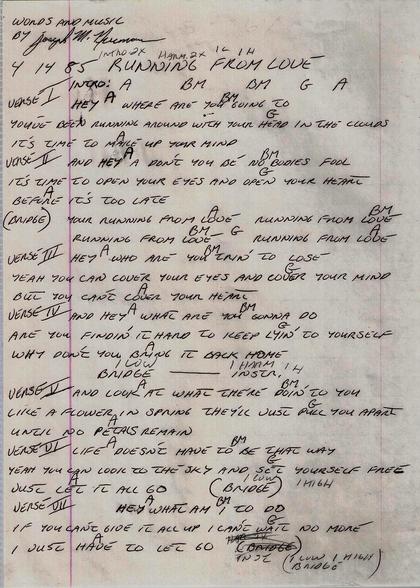 WORDS AND MUSIC
BY Joseph M.
INTRO 2X HARM. 2X 1L 1H
4 14 85 RUNNING FROM LOVE
INTRO: A BM BM G A
VERSE I HEY A WHERE ARE YOU BM GOING TO
YOU'VE BEEN RUNNING AROUND WITH YOUR HEAD IN THE CLOUDS G
IT'S TIME TO MAKE UP YOUR MIND A
VERSE II AND HEY A DON'T YOU BE NO BODIES FOOL BM
IT'S TIME TO OPEN YOUR EYES AND OPEN YOUR HEART G
BEFORE IT'S TOO LATE A
(BRIDGE) YOUR RUNNING FROM LOVE A RUNNING FROM LOVE BM
RUNNING FROM LOVE BM G RUNNING FROM LOVE A
VERSE III HEY A WHO ARE YOU TRYIN' TO LOSE BM
YEAH YOU CAN COVER YOUR EYES AND COVER YOUR MIND G
BUT YOU CAN'T COVER YOUR HEART A
VERSE IV AND HEY A WHAT ARE YOU GONNA DO BM
ARE YOU FINDIN' IT HARD TO KEEP LYIN' TO YOURSELF G
WHY DON'T YOU BRING IT BACK HOME A
1 LOW 1 HARM 1H
BRIDGE — INSTR.
VERSE V AND LOOK A AT WHAT THERE DOIN' TO YOU BM
LIKE A FLOWER IN SPRING THEY'LL JUST PULL YOU APART G
UNTIL NO PETALS REMAIN A
VERSE VI LIFE A DOESN'T HAVE TO BE THAT WAY BM
YEAH YOU CAN LOOK TO THE SKY AND SET YOURSELF FREE G
JUST LET IT ALL GO A (BRIDGE) 1 LOW 1 HIGH
VERSE VII HEY A WHAT AM I TO DO BM
IF YOU CAN'T GIVE IT ALL UP I CAN'T WAIT NO MORE G
I JUST HAVE TO LET GO A (BRIDGE)
INST (1 LOW 1 HIGH BRIDGE)